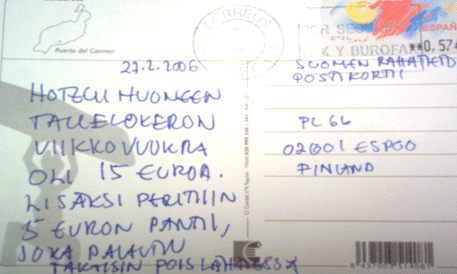 Puerto del Carmen
CORREOS
POR SEG
ESPAÑA
FAX Y BUROFAX
0,57
27.2.2006
HOTELLI HUONEEN
TALLELOKERON
VIIKKOVUOKRA
OLI 15 EUROA.
LISÄKSI PERITIIN
5 EURON PANTTI,
JOKA PALAUTETTIIN
TAKAISIN POISLÄHTIESSÄ
SUOMEN RAHATIETO
POSTIKORTTI
PL 66
02001 ESPOO
FINLAND